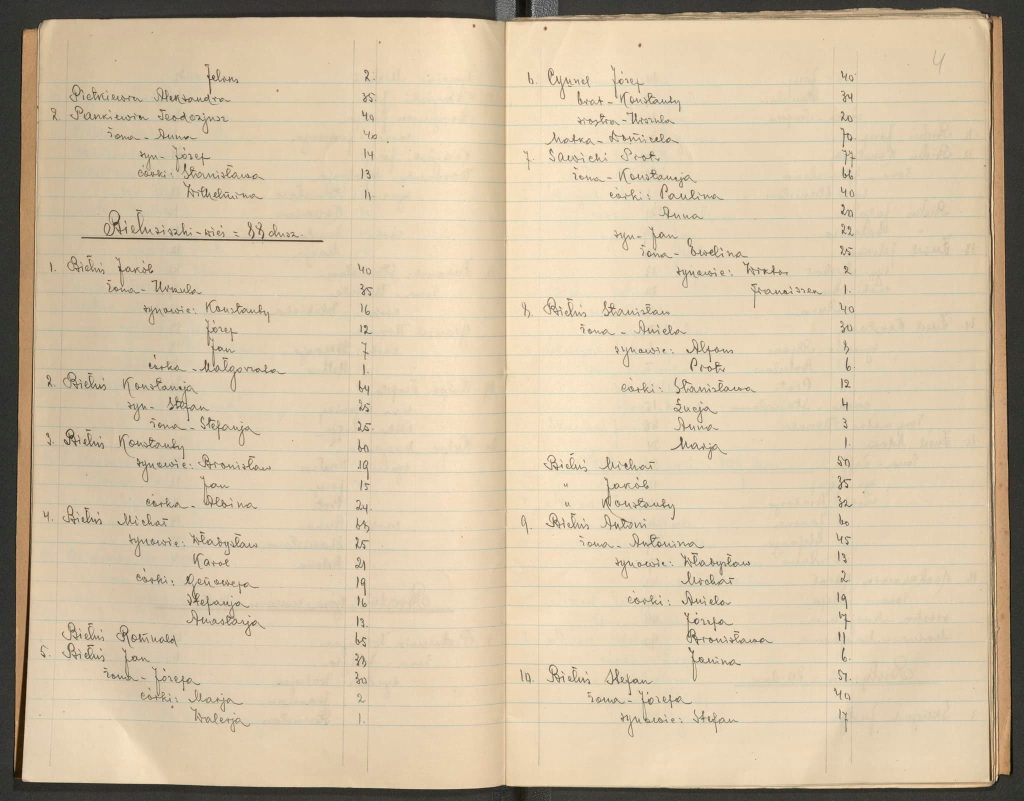 Felons 2.
Pietkiewicz Aleksandra 35
2. Pankiewicz Teodozjusz 40
żona - Anna 40
syn - Józef 14
córki: Stanisława 13
Wilhelmina 11
Bielusiszki - wieś = 88 dusz.
1. Bieluś Jakób 40
żona - Urszula 35
synowie: Konstanty 16
Józef 12
Jan 7
córka - Małgorzata 1.
2. Bieluś Konstancja 64
syn - Stefan 25
żona - Stefanja 25
3. Bieluś Konstanty 60
synowie: Bronisław 19
Jan 15
córka - Albina 24
4. Bieluś Michał 63
synowie: Władysław 25
Karol 21
córki: Genowefa 19
Stefanja 16
Anastazja 13.
Bieluś Romuald 65
5. Bieluś Jan 33
żona - Józefa 30
córki: Marja 2
Walerja 1.
4
6. Cynnel Józef 40
brat - Konstanty 34
siostra - Urszula 20
Matka - Domicela 70
7. Sawicki Piotr 77
żona - Konstancja 66
córki: Paulina 40
Anna 20
syn - Jan 22
żona - Ewelina 25
synowie: Wiktor 2
Franciszek 1.
8. Bieluś Stanisław 40
żona - Aniela 30
synowie: Alfons 8
Piotr 6
córki: Stanisława 12
Łucja 4
Anna 3
Marja 1.
Bieluś Michał 50
" Jakób 35
" Konstanty 32
9. Bieluś Antoni 60
żona - Antonina 45
synowie: Władysław 13
Michał 2
córki: Aniela 19
Józefa 17
Bronisława 11
Janina 6.
10. Bieluś Stefan 51.
żona - Józefa 40
synowie: Stefan 17